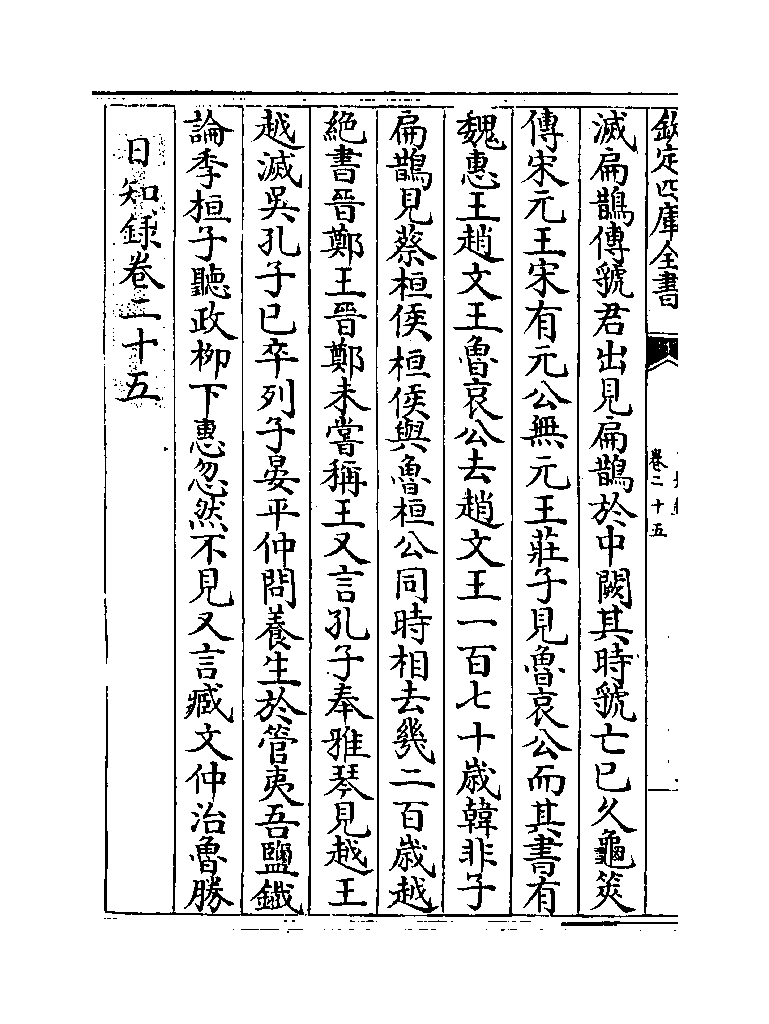 欽定四庫全書
卷二十五
滅扁鵲傳虢君出見扁鵲於中闕其時虢亡已久龜筴
傳宋元王宋有元公無元王莊子見魯哀公而其書有
魏惠王趙文王魯哀公去趙文王一百七十歲韓非子
扁鵲見蔡桓侯桓侯與魯桓公同時相去幾二百歲越
絶書晉鄭王晉鄭未嘗稱王又言孔子奉雅琴見越王
越滅吳孔子已卒列子晏平仲問養生於管夷吾鹽鐵
論季桓子聽政柳下惠忽然不見又言臧文仲治魯勝
日知錄卷二十五